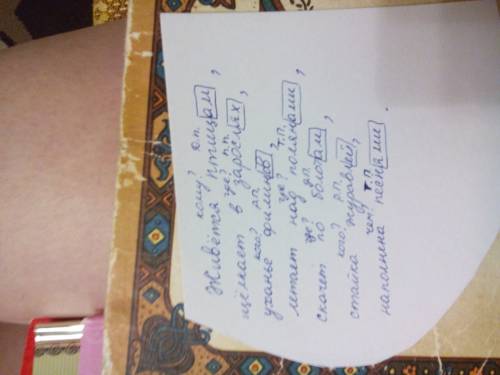 кому? Д.п.
Живётся птицам,
где? П.п.
щёлкает в зарослях,
кого? Р.п.
уханье филинов,
где? Т.п.
летает над полянами,
где? Д.п.
скачет по болотам,
кого? Р.п.
стайка журавлей,
чем? Т.п.
наполнена песнями.